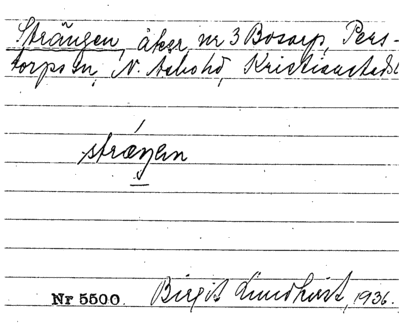 Strängen, åker, nr 3 Bosarp, Pers-
torps sn, N. Åsbo hd, Kristianstads l
strængən
Nr 5500. Birgit Lundqvist, 1936.